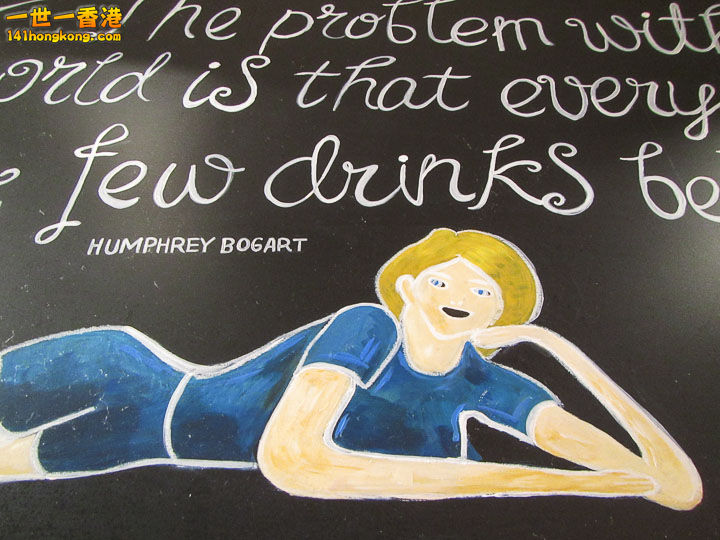 一世一香港
141hongkong.com
The problem with
orld is that every
few drinks be
HUMPHREY BOGART